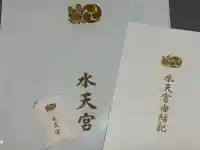 水天宮
水天宮
水天宮由緒記